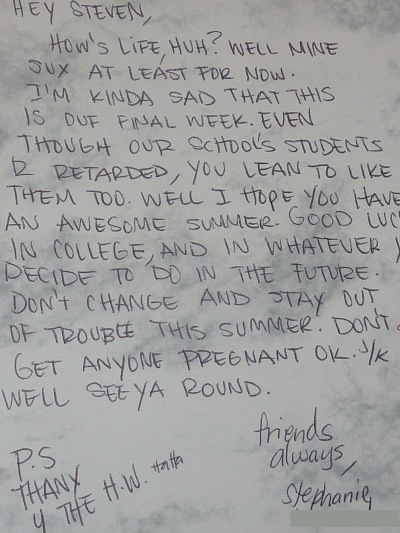 HEY STEVEN,
HOW'S LIFE, HUH? WELL MINE
SUX AT LEAST FOR NOW.
I'M KINDA SAD THAT THIS
IS OUF FINAL WEEK. EVEN
THOUGH OUR SCHOOL'S STUDENTS
R RETARDED, YOU LEAN TO LIKE
THEM TOO. WELL I HOPE YOU HAVE
AN AWESOME SUMMER. GOOD LUC
IN COLLEGE, AND IN WHATEVER
DECIDE TO DO IN THE FUTURE.
DON'T CHANGE AND STAY OUT
OF TROUBLE THIS SUMMER. DON'T
GET ANYONE PREGNANT OK. J/K
WELL SEE YA ROUND.
friends
always,
Stephanie
P.S
THANX
4 THE H.W. Haha